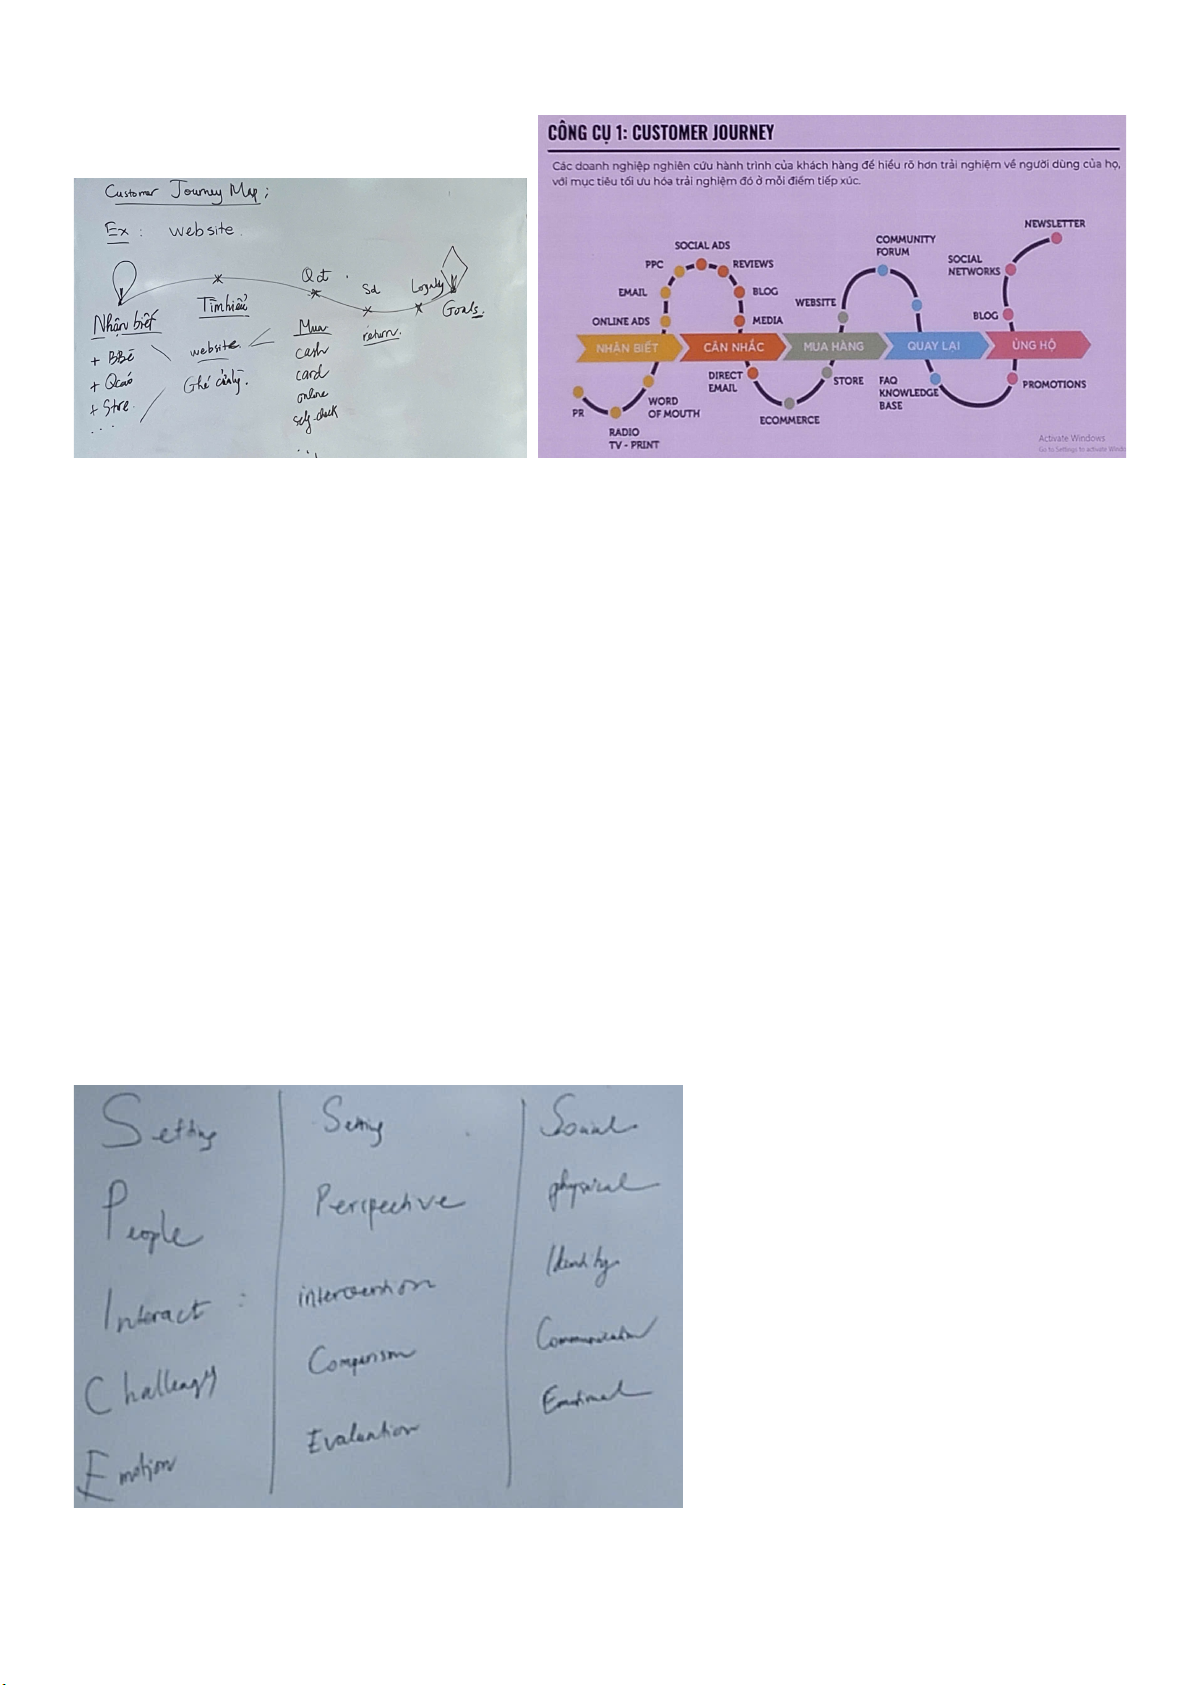 Customer Journey Map;
Ex : website.
Qđ
Sd
Loyalty
Goals.
Nhận biết
Tìm hiểu
Mua
return.
+ BBè
website.
cash
+ Qcáo
card
+ Store.
online
self-check
...
CÔNG CỤ 1: CUSTOMER JOURNEY
Các doanh nghiệp nghiên cứu hành trình của khách hàng để hiểu rõ hơn trải nghiệm về người dùng của họ,
với mục tiêu tối ưu hóa trải nghiệm đó ở mỗi điểm tiếp xúc.
NEWSLETTER
COMMUNITY
FORUM
SOCIAL ADS
SOCIAL
NETWORKS
PPC
REVIEWS
EMAIL
BLOG
WEBSITE
BLOG
ONLINE ADS
MEDIA
NHẬN BIẾT
CÂN NHẮC
MUA HÀNG
QUAY LẠI
ỦNG HỘ
DIRECT
EMAIL
STORE
FAQ
KNOWLEDGE
BASE
PROMOTIONS
WORD
OF MOUTH
PR
ECOMMERCE
RADIO
TV - PRINT
Activate Windows
Go to Settings to activate Windo
Setting
People
Interact :
Challengy
Emotion
Setting
Perspective
intervention
Comparism
Evaluation
Social
physical
Identity
Communication
Emotional